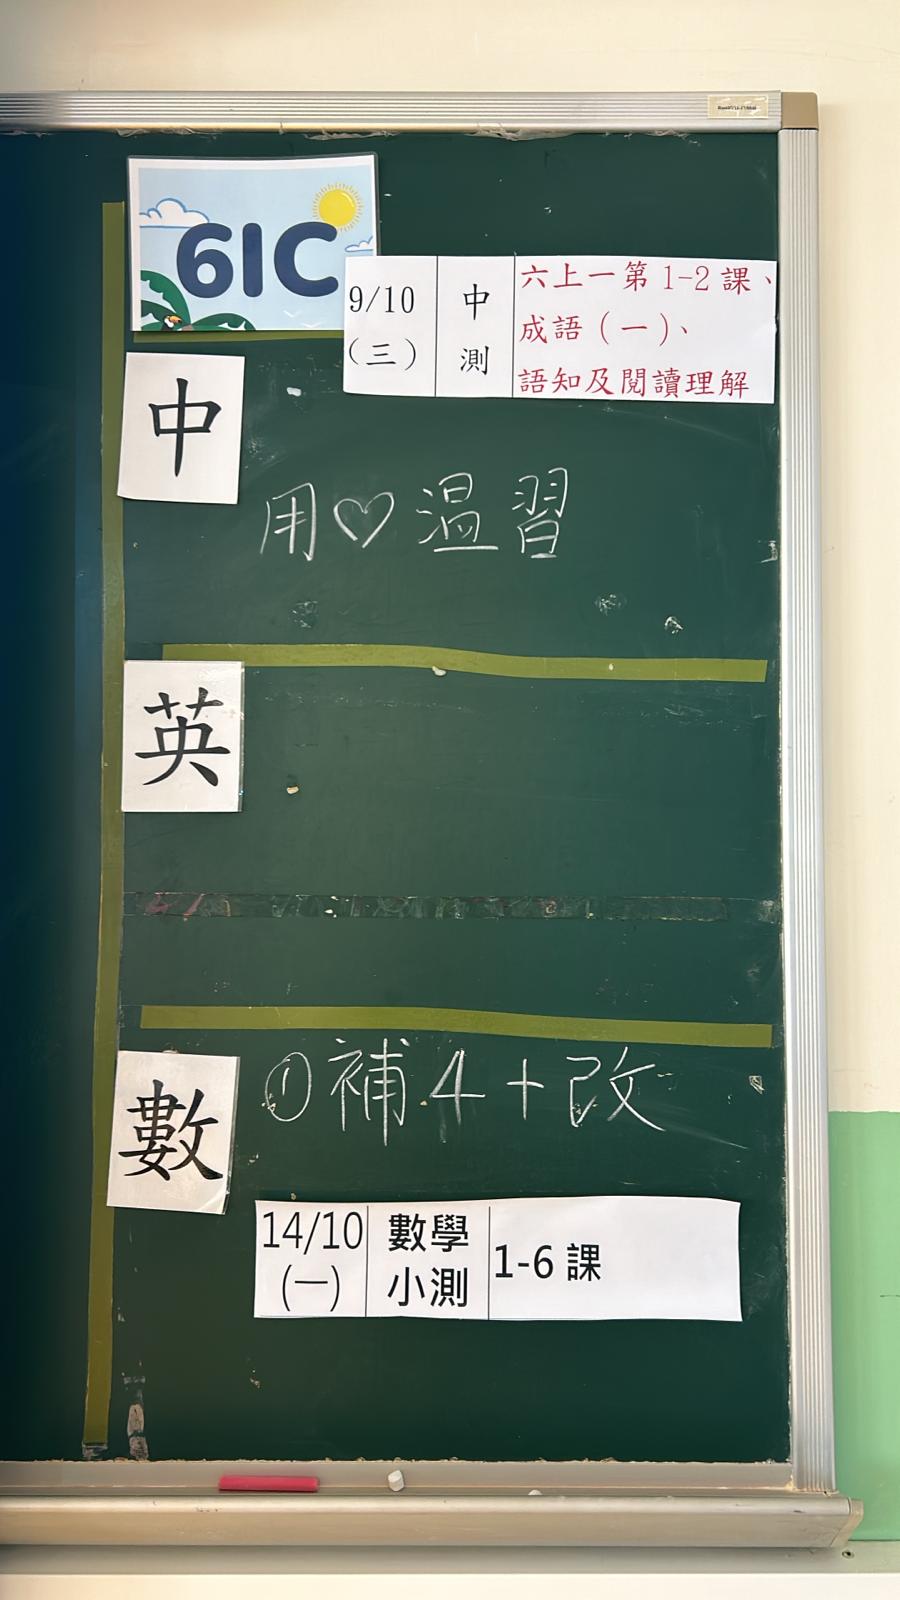 6IC
9/10
(三)
中
測
六上一第 1-2 課、
成語(一)、
語知及閱讀理解
中
用♡溫習
英
數
①補4+改
14/10
(一)
數學
小測
1-6 課